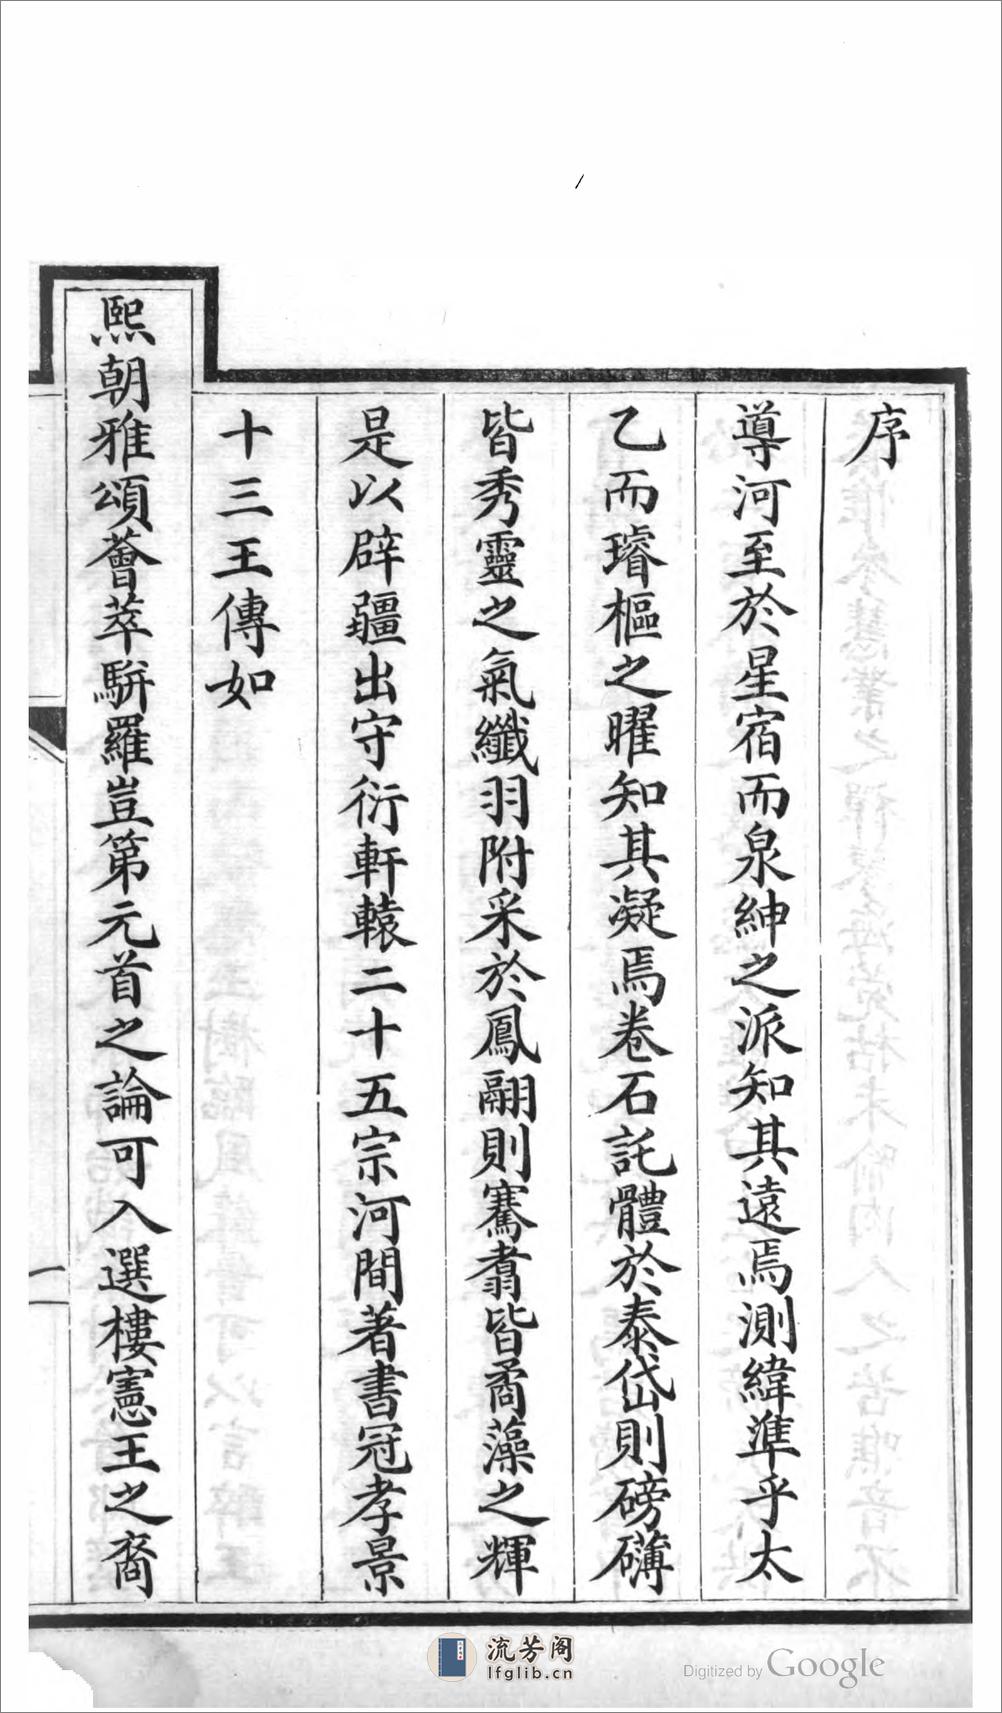 序
導河至於星宿而泉紳之派知其遠焉測緯準乎太
乙而璿樞之曜知其凝焉卷石託體於泰岱則磅礴
皆秀靈之氣纖羽附采於鳳翮則騫翥皆矞藻之輝
是以辟疆出守衍軒轅二十五宗河間著書冠孝景
十三王傳如
熙朝雅頌薈萃駢羅豈第元首之論可入選樓憲王之裔
一
流芳阁
lfglib.cn
Digitized by Google